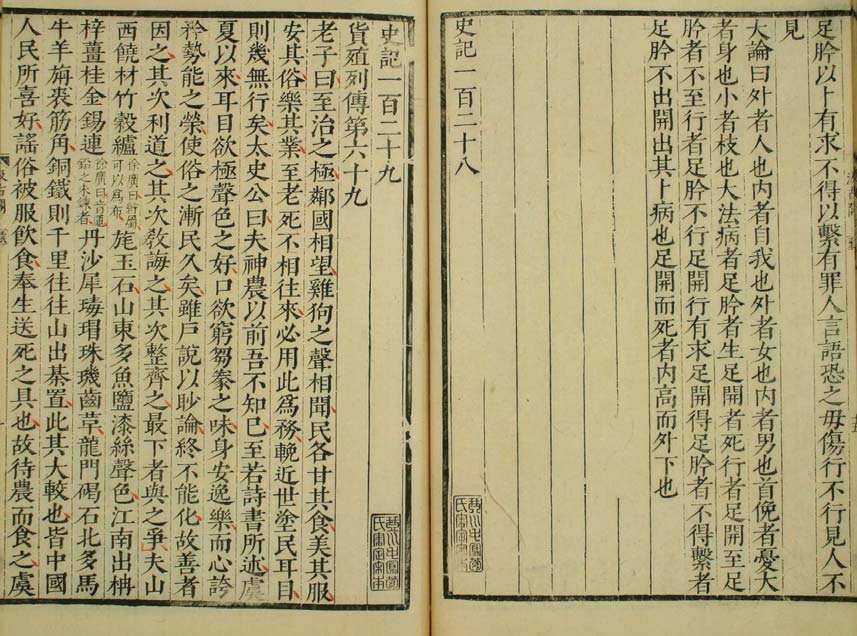 足肣以卜有求不得以繫有罪人言語恐之毋傷行不行見人不
見
大論曰外者人也內者自我也外者女也內者男也首俛者憂大
者身也小者枝也大法病者足肣者生足開者死行者足開至足
肣者不至行者足肣不行足開行有求足開得足肣者不得繫者
足肣不出開出其卜病也足開而死者內高而外下也
史記一百二十八
史記一百二十九
貨殖列傳第六十九
老子曰至治之極鄰國相望雞狗之聲相聞民各甘其食美其服
安其俗樂其業至老死不相往來必用此爲務輓近世塗民耳目
則幾無行矣太史公曰夫神農以前吾不知已至若詩書所述虞
夏以來耳目欲極聲色之好口欲窮芻豢之味身安逸樂而心誇
矜勢能之榮使俗之漸民久矣雖戶說以眇論終不能化故善者
因之其次利道之其次敎誨之其次整齊之最下者與之爭夫山
西饒材竹穀纑徐廣曰紵屬可以爲布旄玉石山東多魚鹽漆絲聲色江南出枏
梓薑桂金錫連徐廣曰音蓮鉛之未鍊者丹沙犀瑇瑁珠璣齒革龍門碣石北多馬
牛羊旃裘筋角銅鐵則千里往往山出棊置此其大較也皆中國
人民所喜好謠俗被服飲食奉生送死之具也故待農而食之虞